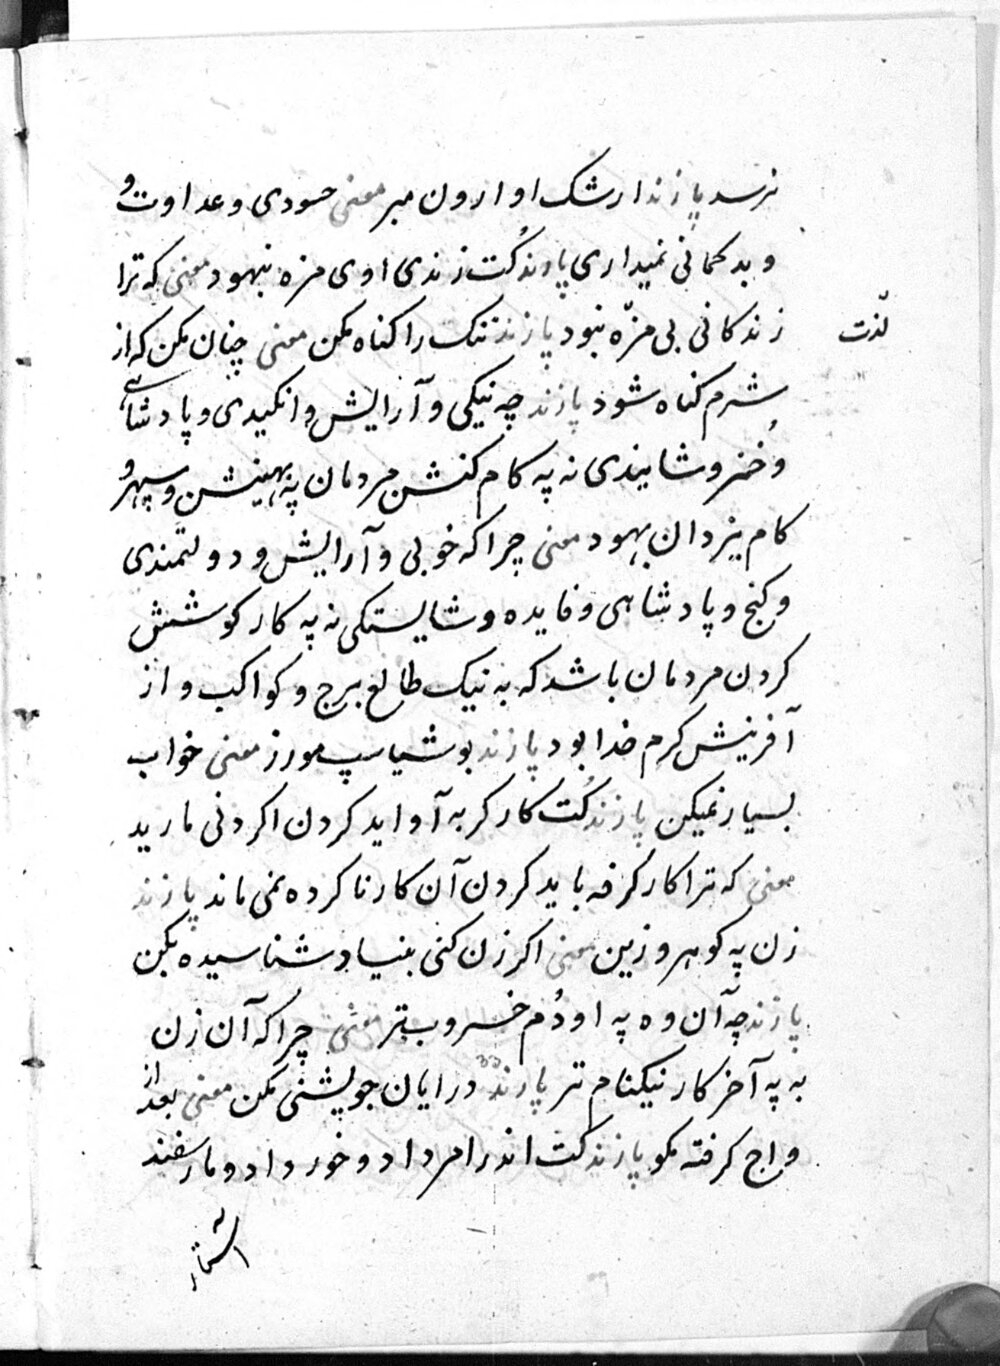 نرسد پازند ارشک اوارون مبر معنی حسودی و عداوت و
و بد کمانی نمیداری پازند کُت زندی اوی مزه نبهود معنی که ترا
زندکانی بی مزّه نبود پازند تنک را کناه مکن معنی چنان مکن که از
لذّت
شرم کناه شود پازند چه نیکی و آرایش و انکیدی و پادشائی
و خنر و شایندی نه په کام کنشن مردمان په بهینشن و سپهر و
کام یزدان بهود معنی چرا که خوبی و آرایش و دولتمندی
و کنج و پادشاهی و فایده و شایستکی نه په کار کوشش
کردن مردمان باشد که به نیک طالع برج و کواکب و از
آفرینش کرم خدا بود پازند بوشیاسپ مورز معنی خواب
بسیار نمیکن پازند کُت کار کربه آواید کردن اکردنی مارید
معنی که ترا کار کرفه باید کردن آن کار ناکرده نمی ماند پازند
زن په کوهر و زین معنی اکر زن کنی بنیاد شناسیده بکن
پازند چه آن وه په اودُم خسروب تر معنی چرا که آن زن
به په آخر کار نیکنام تر پازند درایان جویشنی مکن معنی بعد از
واج کرفته مکو پازند کت اندر امرداد و خورداد و مارسفند